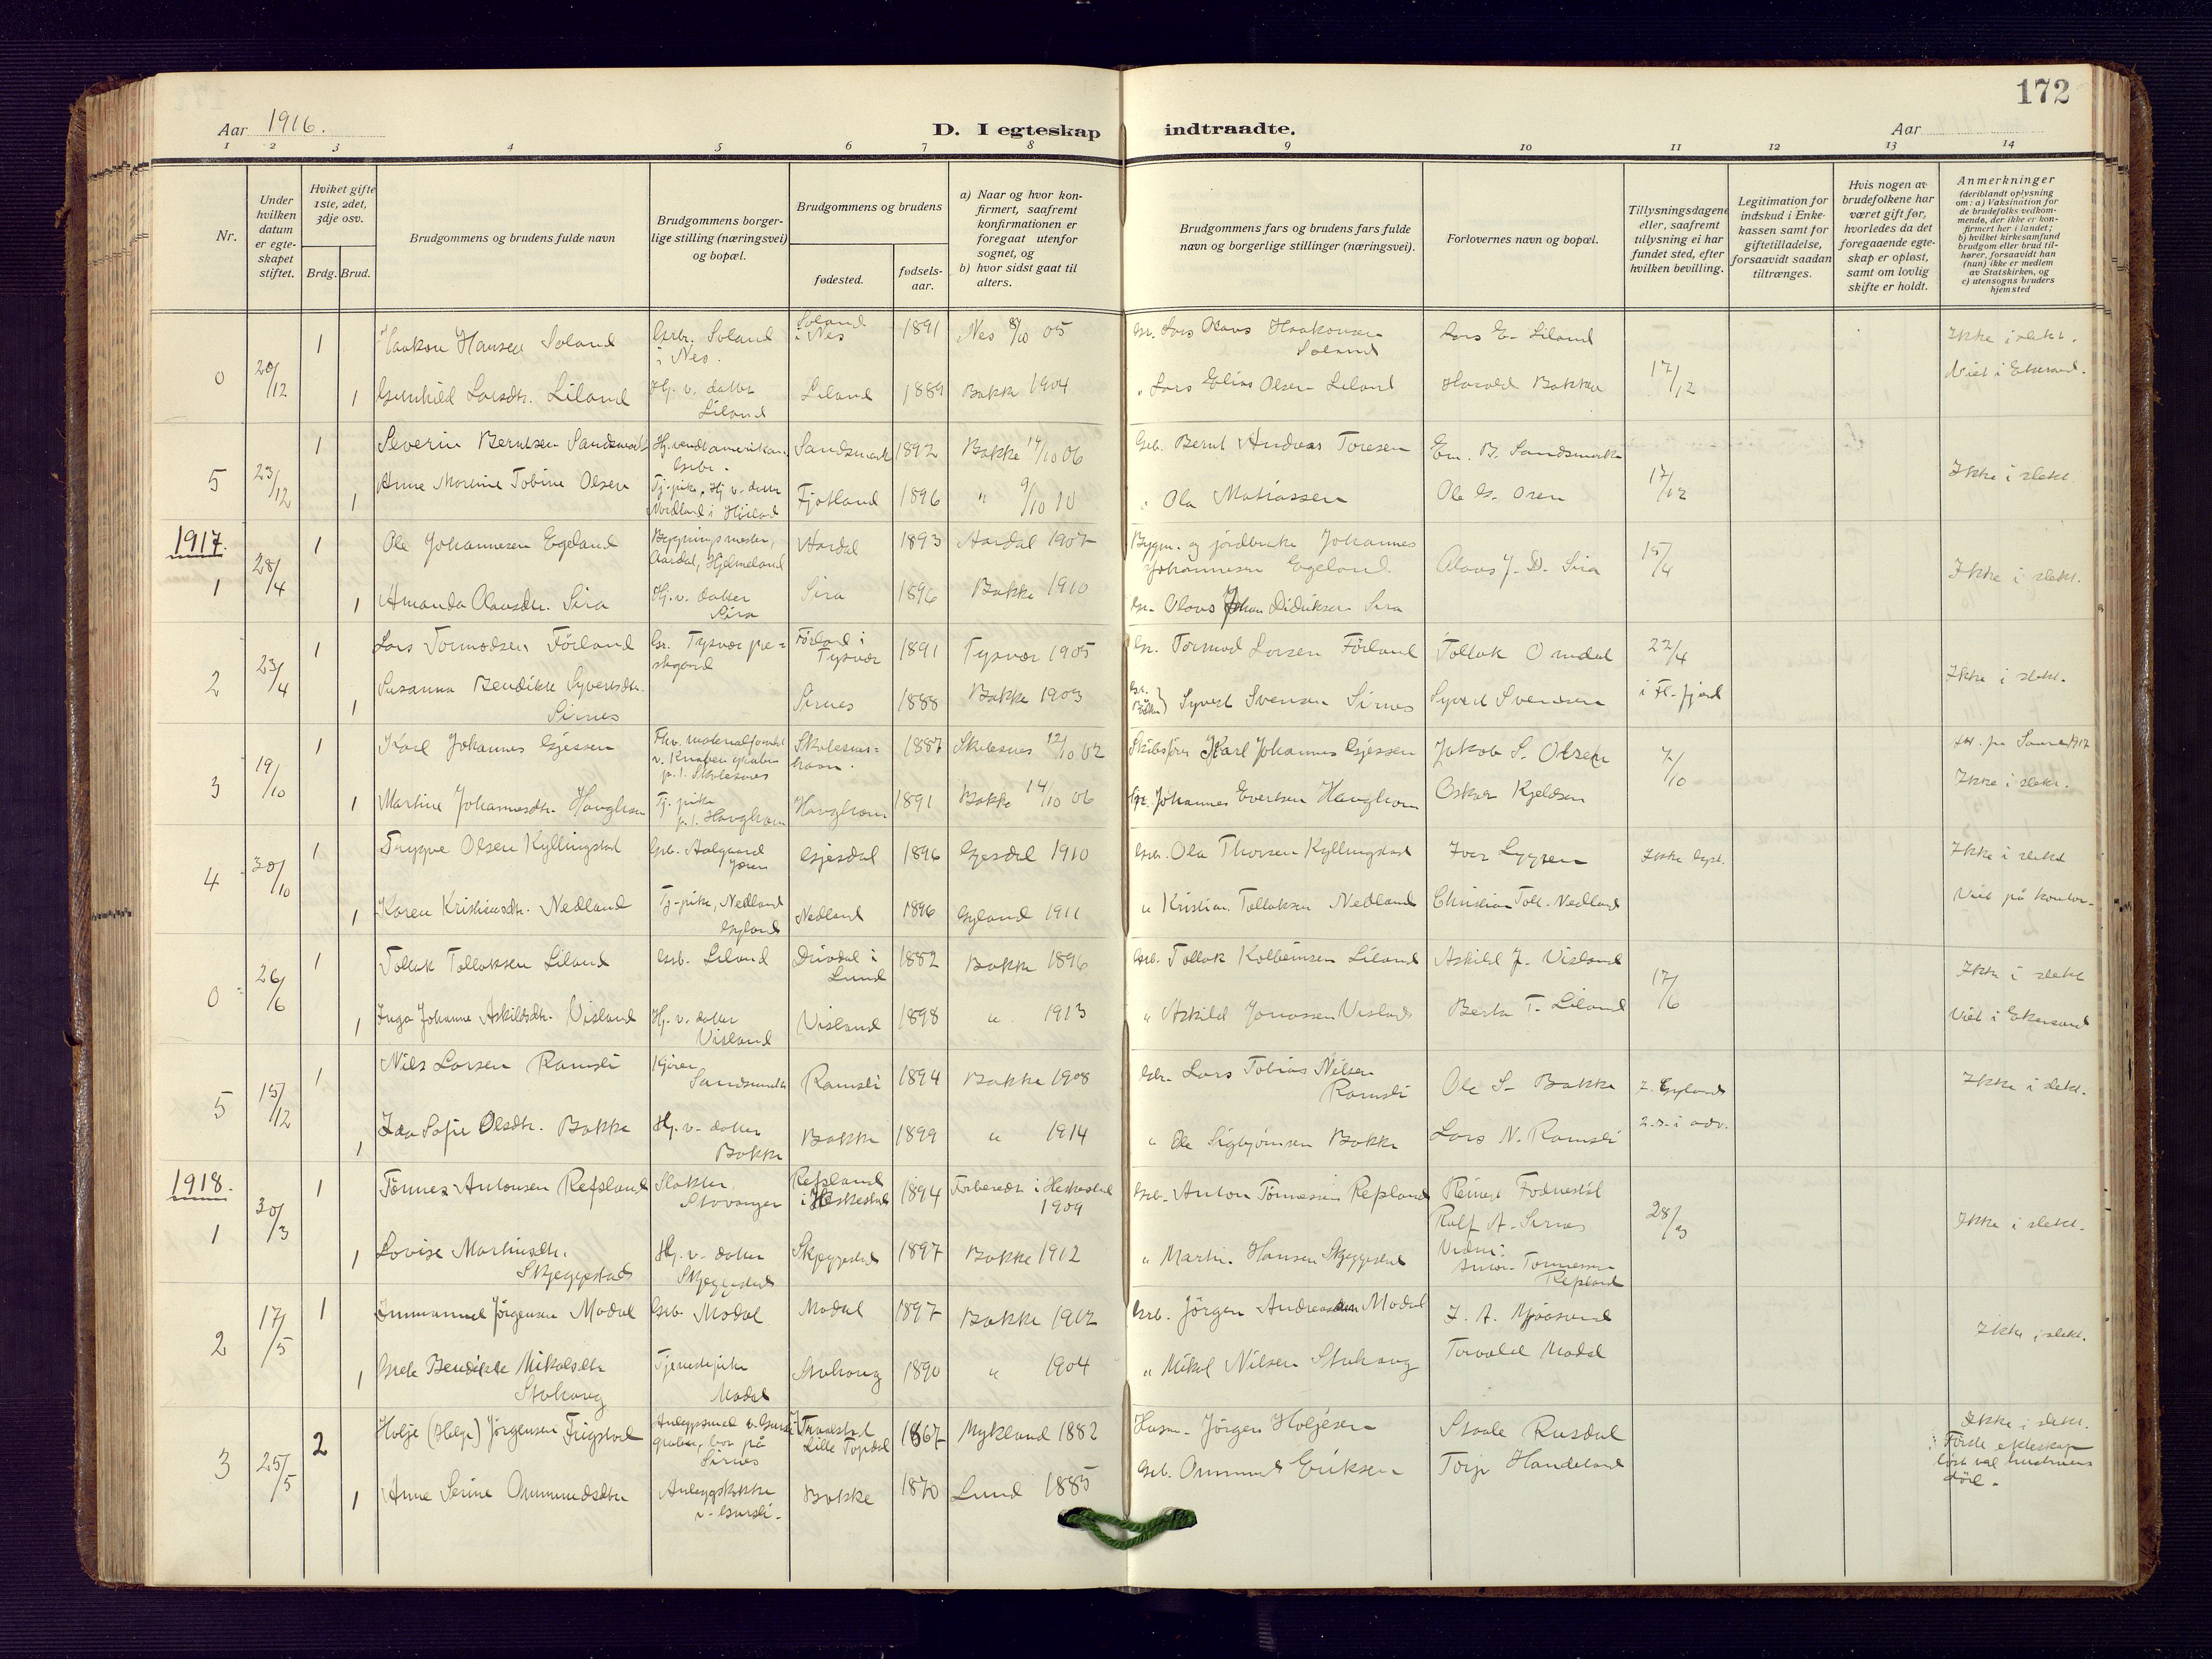 172
Aar 1916.
D. I egteskap indtraadte.
Aar
1 2 3 4 5 6 7 8 9 10 11 12 13 14
Nr.
Under hvilken datum er egteskapet stiftet.
Hviket gifte 1ste, 2det, 3dje osv.
Brdg. Brud.
Brudgommens og brudens fulde navn
Brudgommens borgerlige stilling (næringsvei) og bopæl.
Brudgommens og brudens
fødested.
fødselsaar.
a) Naar og hvor konfirmert, saafremt konfirmationen er foregaat utenfor sognet, og
b) hvor sidst gaat til alters.
Brudgommens fars og brudens fars fulde navn og borgerlige stillinger (næringsvei).
Forlovernes navn og bopæl.
Tillysningsdagene eller, saafremt tillysning ei har fundet sted, efter hvilken bevilling.
Legitimation for indskud i Enkekassen samt for giftetilladelse, forsaavidt saadan tiltrænges.
Hvis nogen av brudefolkene har været gift før, hvorledes da det foregaaende egteskap er opløst, samt om lovlig skifte er holdt.
Anmerkninger
(deriblandt oplysning om: a) Vaksination for de brudefolks vedkommende, der ikke er konfirmert her i landet; b) hvilket kirkesamfund brudgom eller brud tilhører, forsaavidt han (hun) ikke er medlem av Statskirken, og c) utensogns bruders hjemsted
0 20/12 1 Haakon Hansen Soland Grbr. Soland i Nes. Soland i Nes 1891 Nes 8/10 05 Gr. Lars Olaus Haakonsen Soland Lars E. Liland 17/12 Ikke i slekt.
1 Gunhild Larsdtr. Liland Hj. v. datter Liland Liland 1889 Bakke 1904 " Lars Elias Olsen Liland Harald Bakke Viet i Ekersund.
5 23/12 1 Severin Berntsen Sandsmark Hj.vendt amerikan. Grbr. Sandsmark 1892 Bakke 14/10 06 Grb. Bernt Andreas Toresen Em. B. Sandsmark 17/12 Ikke i slekt.
1 Anne Martine Tobine Olsen Tj.pike, Hj v. datter Nordland i Hæland Fjotland 1896 " 9/10 10 " Ola Matiassen Ole G. Oren
1917.
1 28/4 1 Ole Johannesen Egeland Bygningsmester, Aardal, Hjelmeland Aardal 1893 Aardal 1907 Bygm. og jordbruker Johannes Johannesen Egeland. Olaus J. D. Sira 15/4 Ikke i slekt.
1 Amanda Olausdtr. Sira Hj. v. datter Sira Sira 1896 Bakke 1910 Gr. Olaus Johan Didriksen Sira
2 23/4 1 Lars Tormodsen Förland Gr. Tysvær prestegaard Förland i Tysvær 1891 Tysvær 1905 Gr. Tormod Larsen Förland Tollak Omdal 22/4 Ikke i slekt.
1 Susanna Bendikte Syvertsdtr. Sirnes Sirnes 1888 Bakke 1903 Syvert Svensen Sirnes Syvert Svendsen i Fl.fjord
3 19/10 1 Karl Johannes Gjessen Fhv. materialforvalt v. Knaben gruber p.t. Skolesnes Skolesneshavn. 1887 Skolesnes 12/10 02 Skibsfører Karl Johannes Gjessen Jakob S. Olsen 7/10 Ikke i slekt.
1 Martine Johannesdtr. Haughom Tj. pike p.t. Haughom Haughom 1891 Bakke 14/10 06 Gr. Johannes Evertsen Haughom Oskar Kjeldsen
4 30/10 1 Trygve Olsen Kyllingstad Grb. Aalgaard Jæren Gjesdal 1896 Gjesdal 1910 Grb. Ola Thorsen Kyllingstad Ivar Lygren Ikke lyst. Ikke i slekt
1 Karen Kristiansdtr. Nedland Tj-pike, Nedland Gyland Nedland 1896 Gyland 1911 " Kristian Tollaksen Nedland Christian Toll. Nedland Viet på kontor.
0 26/6 1 Tollak Tollaksen Liland Grb. Liland Drivdal i Lund 1882 Bakke 1896 Grb. Tollak Kolbeinsen Liland Askild J. Visland 17/6 Ikke i slekt
1 Inga Johanne Askildsdtr. Visland Hj. v. datter Visland Visland 1898 " 1913 " Askild Jonassen Visland Berta T. Liland Viet i Ekersund
5 15/12 1 Nils Larsen Ramsli Kjører Sandsmark Ramsli 1894 Bakke 1908 Gbr. Lars Tobias Nilsen Ramsli Ole S. Bakke I Gyland Ikke i slekt.
1 Ida Sofie Olsdtr. Bakke Hj. v. datter Bakke Bakke 1899 " 1914 " Ole Sigbjørnsen Bakke Lars N. Ramsli 2. s. i adv.
1918.
1 30/3 1 Tønnes Antonsen Refsland Slakter Stavanger Refsland i Heskestad 1894 Forberedt i Heskestad 1909 Grb. Anton Tønnessen Refsland Reinert Fodnestöl Ralf A. Sirnes 28/3 Ikke i slekt.
1 Lovise Martinsdtr. Skjeggestad Hj. v. datter Skjeggestad Skjeggestad 1897 Bakke 1912 " Martin Hansen Skjeggestad Vidni: Anton Tønnessen Refsland
2 17/5 1 Emmanuel Jörgensen Modal Grb. Modal Modal 1897 Bakke 1912 Grb. Jörgen Andreassen Modal I. A. Mjaasund Ikke i slekt.
1 Grete Bendikte Mikalsdtr Stuhaug Tjenestepike Modal Stuhaug 1890 " 1904 " Mikal Nilsen Stuhaug Torvald Modal
3 25/5 2 Holje (Helje) Jörgensen Frigstad Anleggssmed v. Gursli gruber, bor på Sirnes Lille Topdal 1867 Mykland 1882 Husm. Jörgen Holjesen Staale Rusdal Ikke i slekt. Første ekteskap løst ved hustruens död.
1 Anne Serine Ommundsdtr Anleggskokke v. Gursli. Bakke 1870 Lund 1885 Grb. Ommund Eriksen Torje Handeland